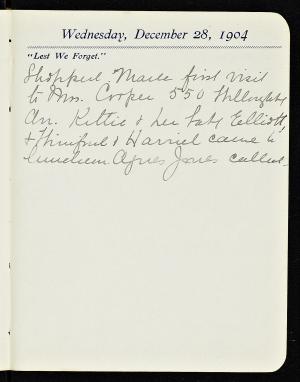 Wednesday, December 28, 1904
"Lest We Forget."
Shopped. Made first visit
to Mrs. Cooper 550 Willoughby
Av. Kittie & her baby Elliott
& Winifred & Harriet came to
luncheon. Agnes Jones called.